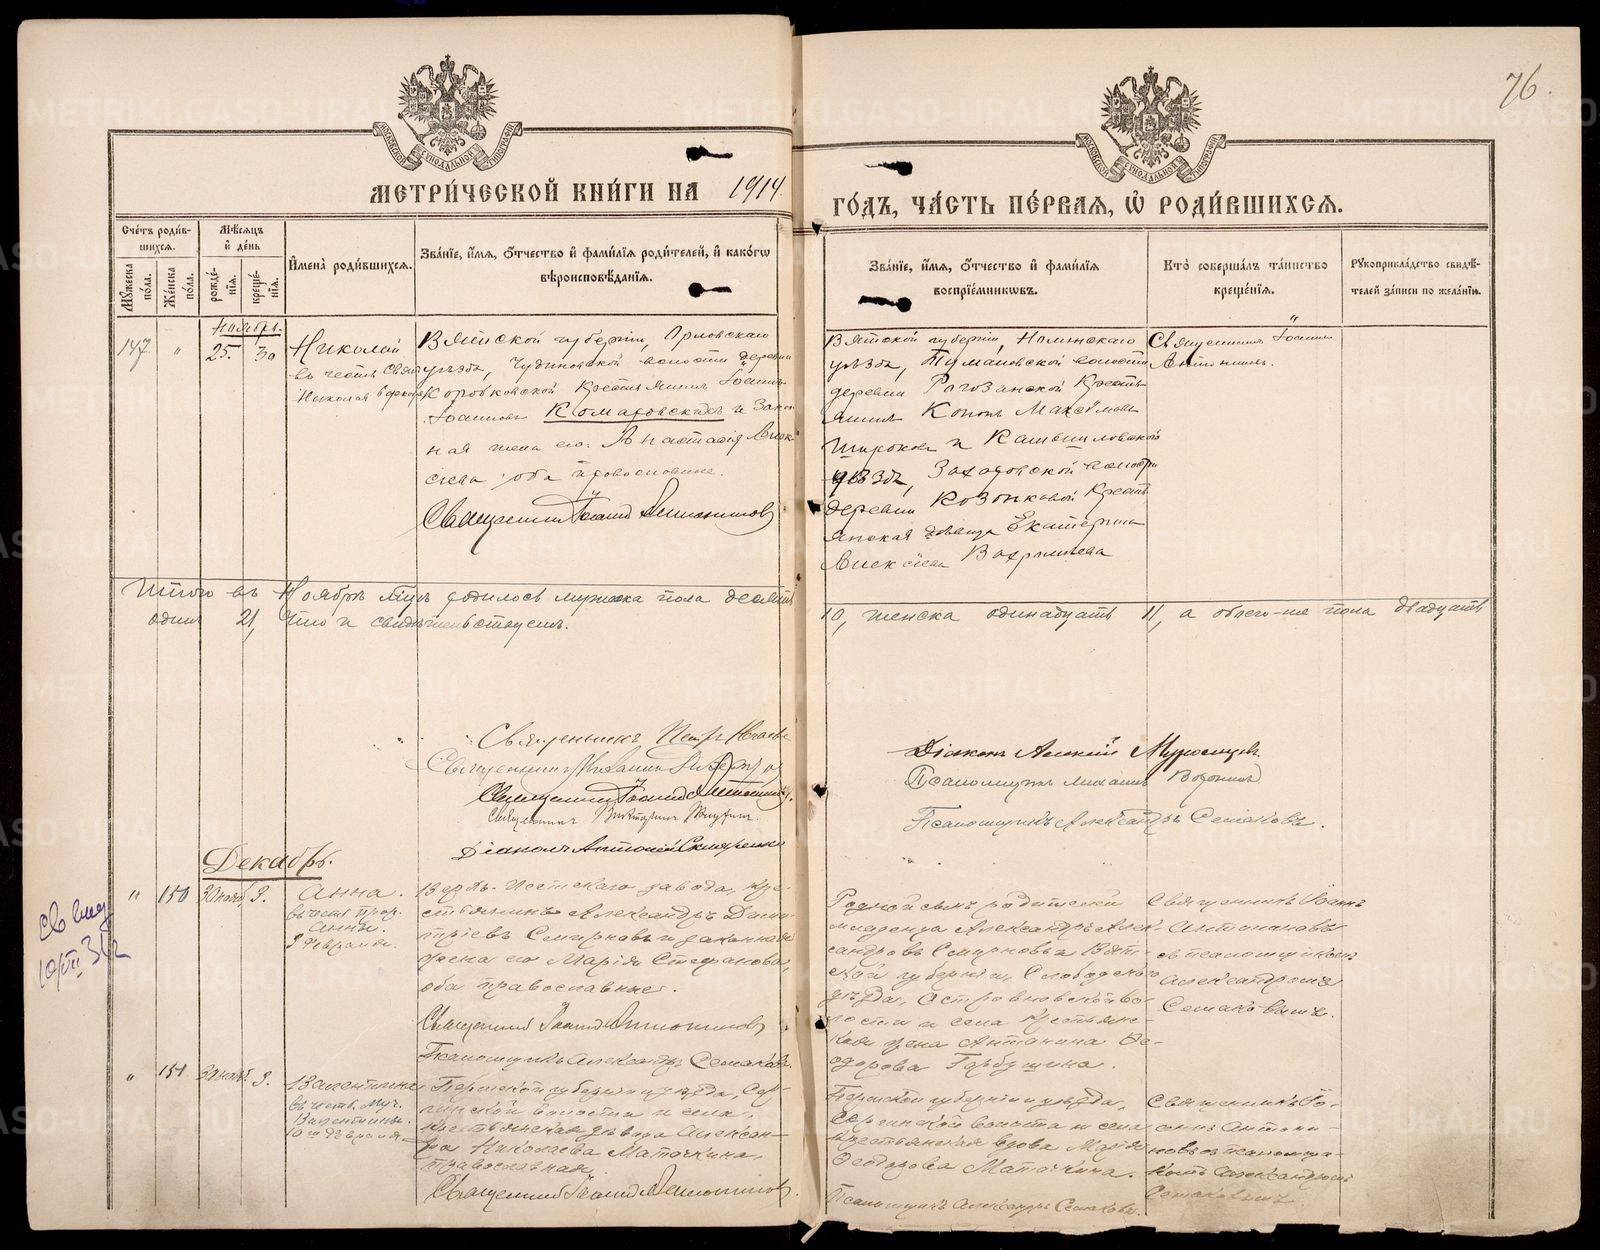 76.
МОСКОВСКОЙ СУНОДАЛЬНОЙ ТИПОГРАФИИ
МОСКОВСКОЙ СУНОДАЛЬНОЙ ТИПОГРАФИИ
МЕТРИ́ЧЕСКОЙ КНИ́ГИ НА 1914
ГО́ДЪ, ЧА́СТЬ ПЕ́РВАЯ, Ѡ РОДИ́ВШИХСЯ.
Сче́тъ роди́вшихся.
Му́жеска по́ла.
Же́нска по́ла.
Мѣ́сяцъ и де́нь
рожде́нія.
креще́нія.
Имена̀ роди́вшихся.
Зва́ніе, и́мя, о́тчество и фами́лія роди́телей, и како́гѡ
вѣроисповѣ́данія.
Зва́ніе, и́мя, о́тчество и фами́лія
воспріе́мникѡвъ.
Кто̀ соверша́лъ та́инство
креще́нія.
Рукоприкла́дство свидѣ́-
телей за́писи по жела́нію.
Ноябрь.
147 " 25. 30
Николай
въ честь Свят.
Николая
Вятской губерніи, Орловскаго
уѣзда, Чудиновской волости деревни
Коробковской Крестьянинъ Іоаннъ
Іоанновъ Комаровскихъ и закон
ная жена его: Анастасія Алек
сѣева оба православные.
Священникъ Іоаннъ Антониновъ
Вятской губерніи, Нолинскаго
уѣзда, Тумановской волости
деревни Рагозанской Кресть
янинъ Кононъ Максимовъ
Широковъ и
уѣзда, Захаровской волости
деревни Козонковой Кресть
янская дѣвица Екатерина
Алексѣева Вахрамеева
Священникъ Іоаннъ
Антонинъ.
Итого въ Ноябрѣ мцѣ родилось мужеска пола десять
10, женска одинадцать 11, а обоего-же пола двадцать
одинъ 21, Что и свидѣтельствуемъ.
Священникъ Петръ
Священникъ
Священникъ Іоаннъ Антониновъ.
Священникъ
Діаконъ Антоній
Діаконъ Алексій Муромцевъ
Псаломщикъ Михаилъ
Псаломщикъ Александръ Семаковъ.
Декабрь.
" 150 30 нояб. 3.
Анна.
въ честь прор.
Анны.
3 февраля.
Верхъ-Исетскаго завода, кре-
стьянинъ Александръ Дими-
тріевъ Смирновъ и законная
жена его Марія Стефанова,
оба православные.
Священникъ Іоаннъ Антониновъ
Псаломщикъ Александръ Семаковъ.
Родной сынъ родителей
младенца Александръ Алек
сандровъ Смирновъ и Вят-
ской губерніи, Слободского
уѣзда, Островновской во-
лости и села крестьянс-
кая жена Антонина Ѳе-
дорова Горбушина.
Священникъ Іоаннъ
Антониновъ
съ псаломщикомъ
Александромъ
Семаковымъ.
" 151 30 нояб. 3.
Валентина
въ честь муч.
Валентины.
10го февраля
Пермской губерніи и уѣзда, Сер-
гинской волости и села,
крестьянская дѣвица Алексан-
дра Николаева Маточкина,
православная.
Священникъ Іоаннъ Антониновъ.
Пермской губерніи и уѣзда,
Сергинской волости и села
крестьянская вдова Марія
Ѳеодорова Маточкина.
Псаломщикъ Александръ Семаковъ.
Священникъ Іо-
аннъ Антони-
новъ съ псаломщи-
комъ Александромъ
Семаковымъ.